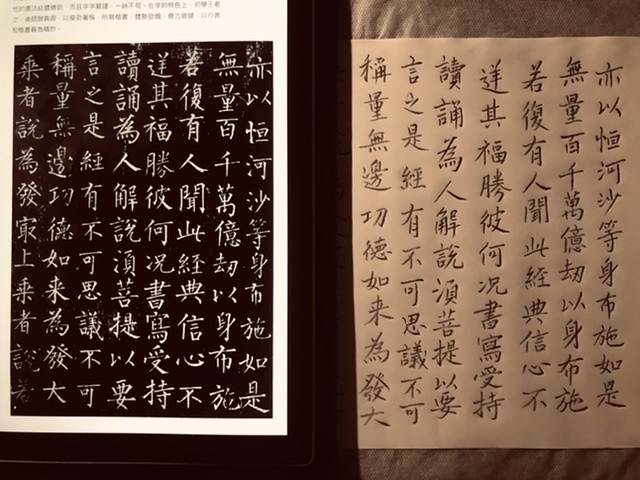 他的書法結體遒勁，而且字字嚴謹，一絲不苟。在字的特色上，初學王羲
之，後師顏真卿，以瘦勁著稱，所寫楷書，體勢勁媚，骨力遒健，以行書
和楷書最為精妙。
亦以恒河沙等身布施如是
無量百千萬億劫以身布施
若復有人聞此經典信心不
逆其福勝彼何况書寫受持
讀誦為人解說須菩提以要
言之是經有不可思議不可
稱量無邊功德如来為發大
乘者說為發冣上乘者說若
亦以恒河沙等身布施如是
無量百千萬億劫以身布施
若復有人聞此經典信心不
逆其福勝彼何况書寫受持
讀誦為人解說須菩提以要
言之是經有不可思議不可
稱量無邊功德如来為發大